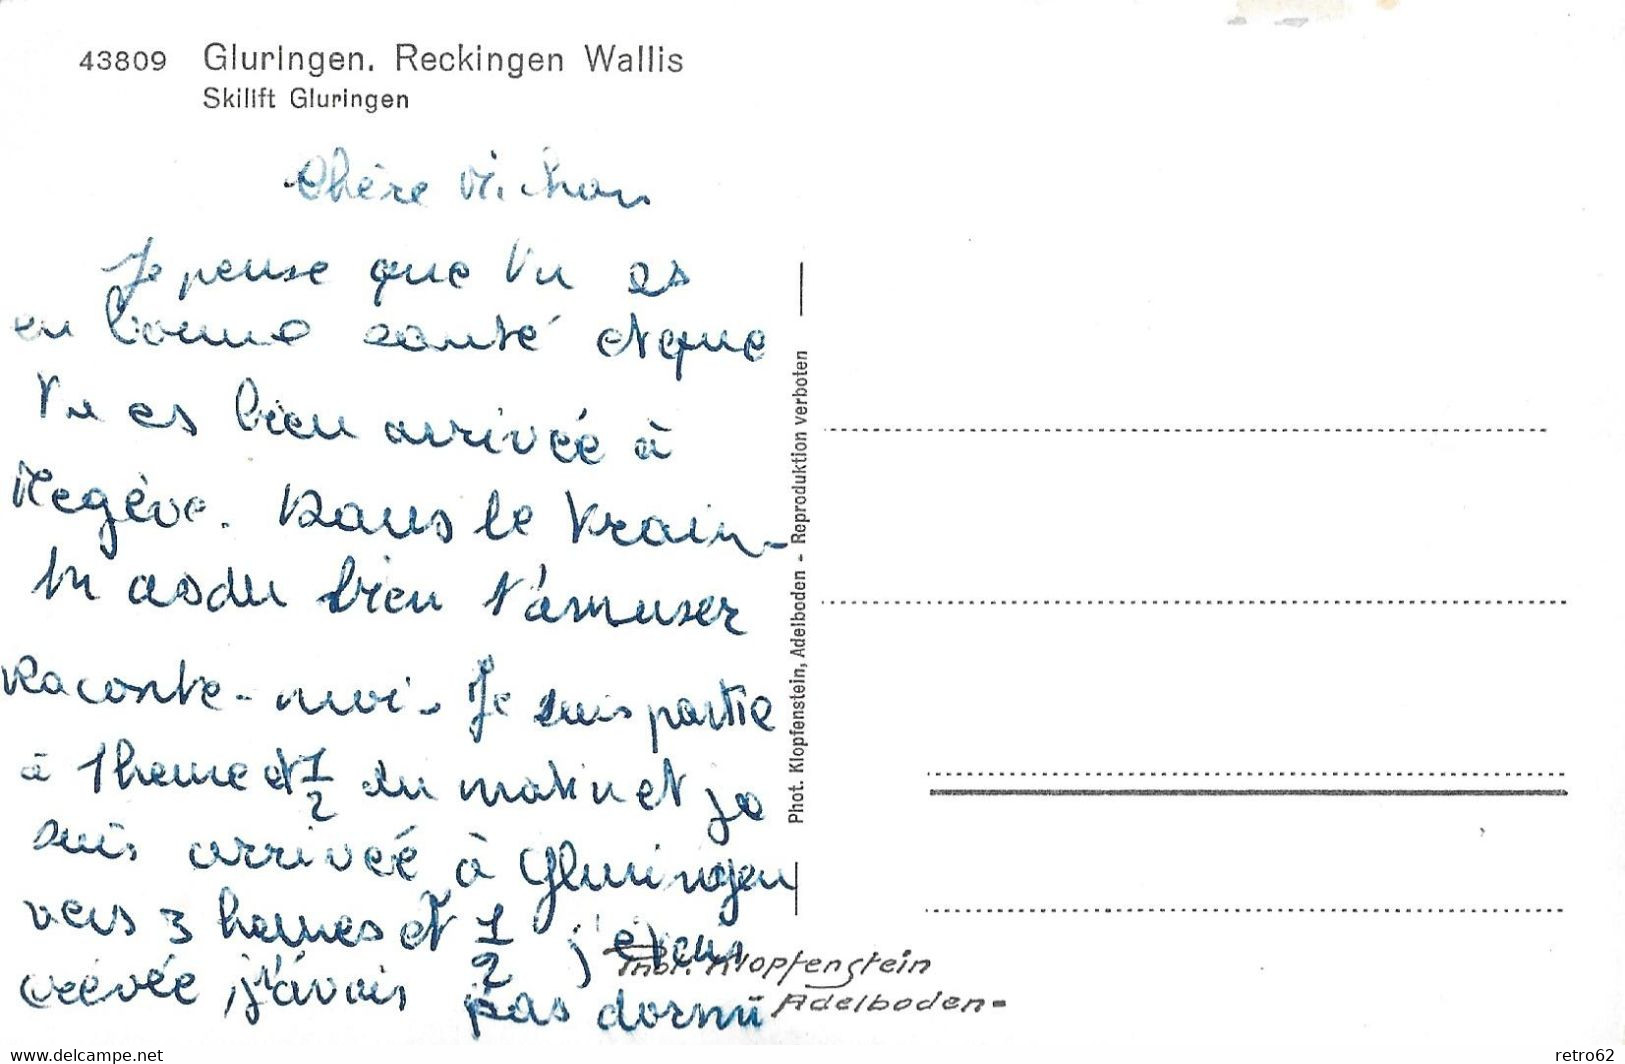 43809 Gluringen. Reckingen Wallis
Skilift Gluringen
Chère
Je pense que tu es
en bonne santé et que
tu es bien arrivée à
Megève. Dans le train
tu as du bien t'amuser
Raconte-moi. Je suis partie
à 1 heure et 1/2 du matin et je
suis arrivée à Gluringen
vers 3 heures et 1/2 j'étais
crévée, j'avais pas dormi
Phot. Klopfenstein, Adelboden - Reproduktion verboten
Phot. Klopfenstein
Adelboden-
www.delcampe.net
retro62